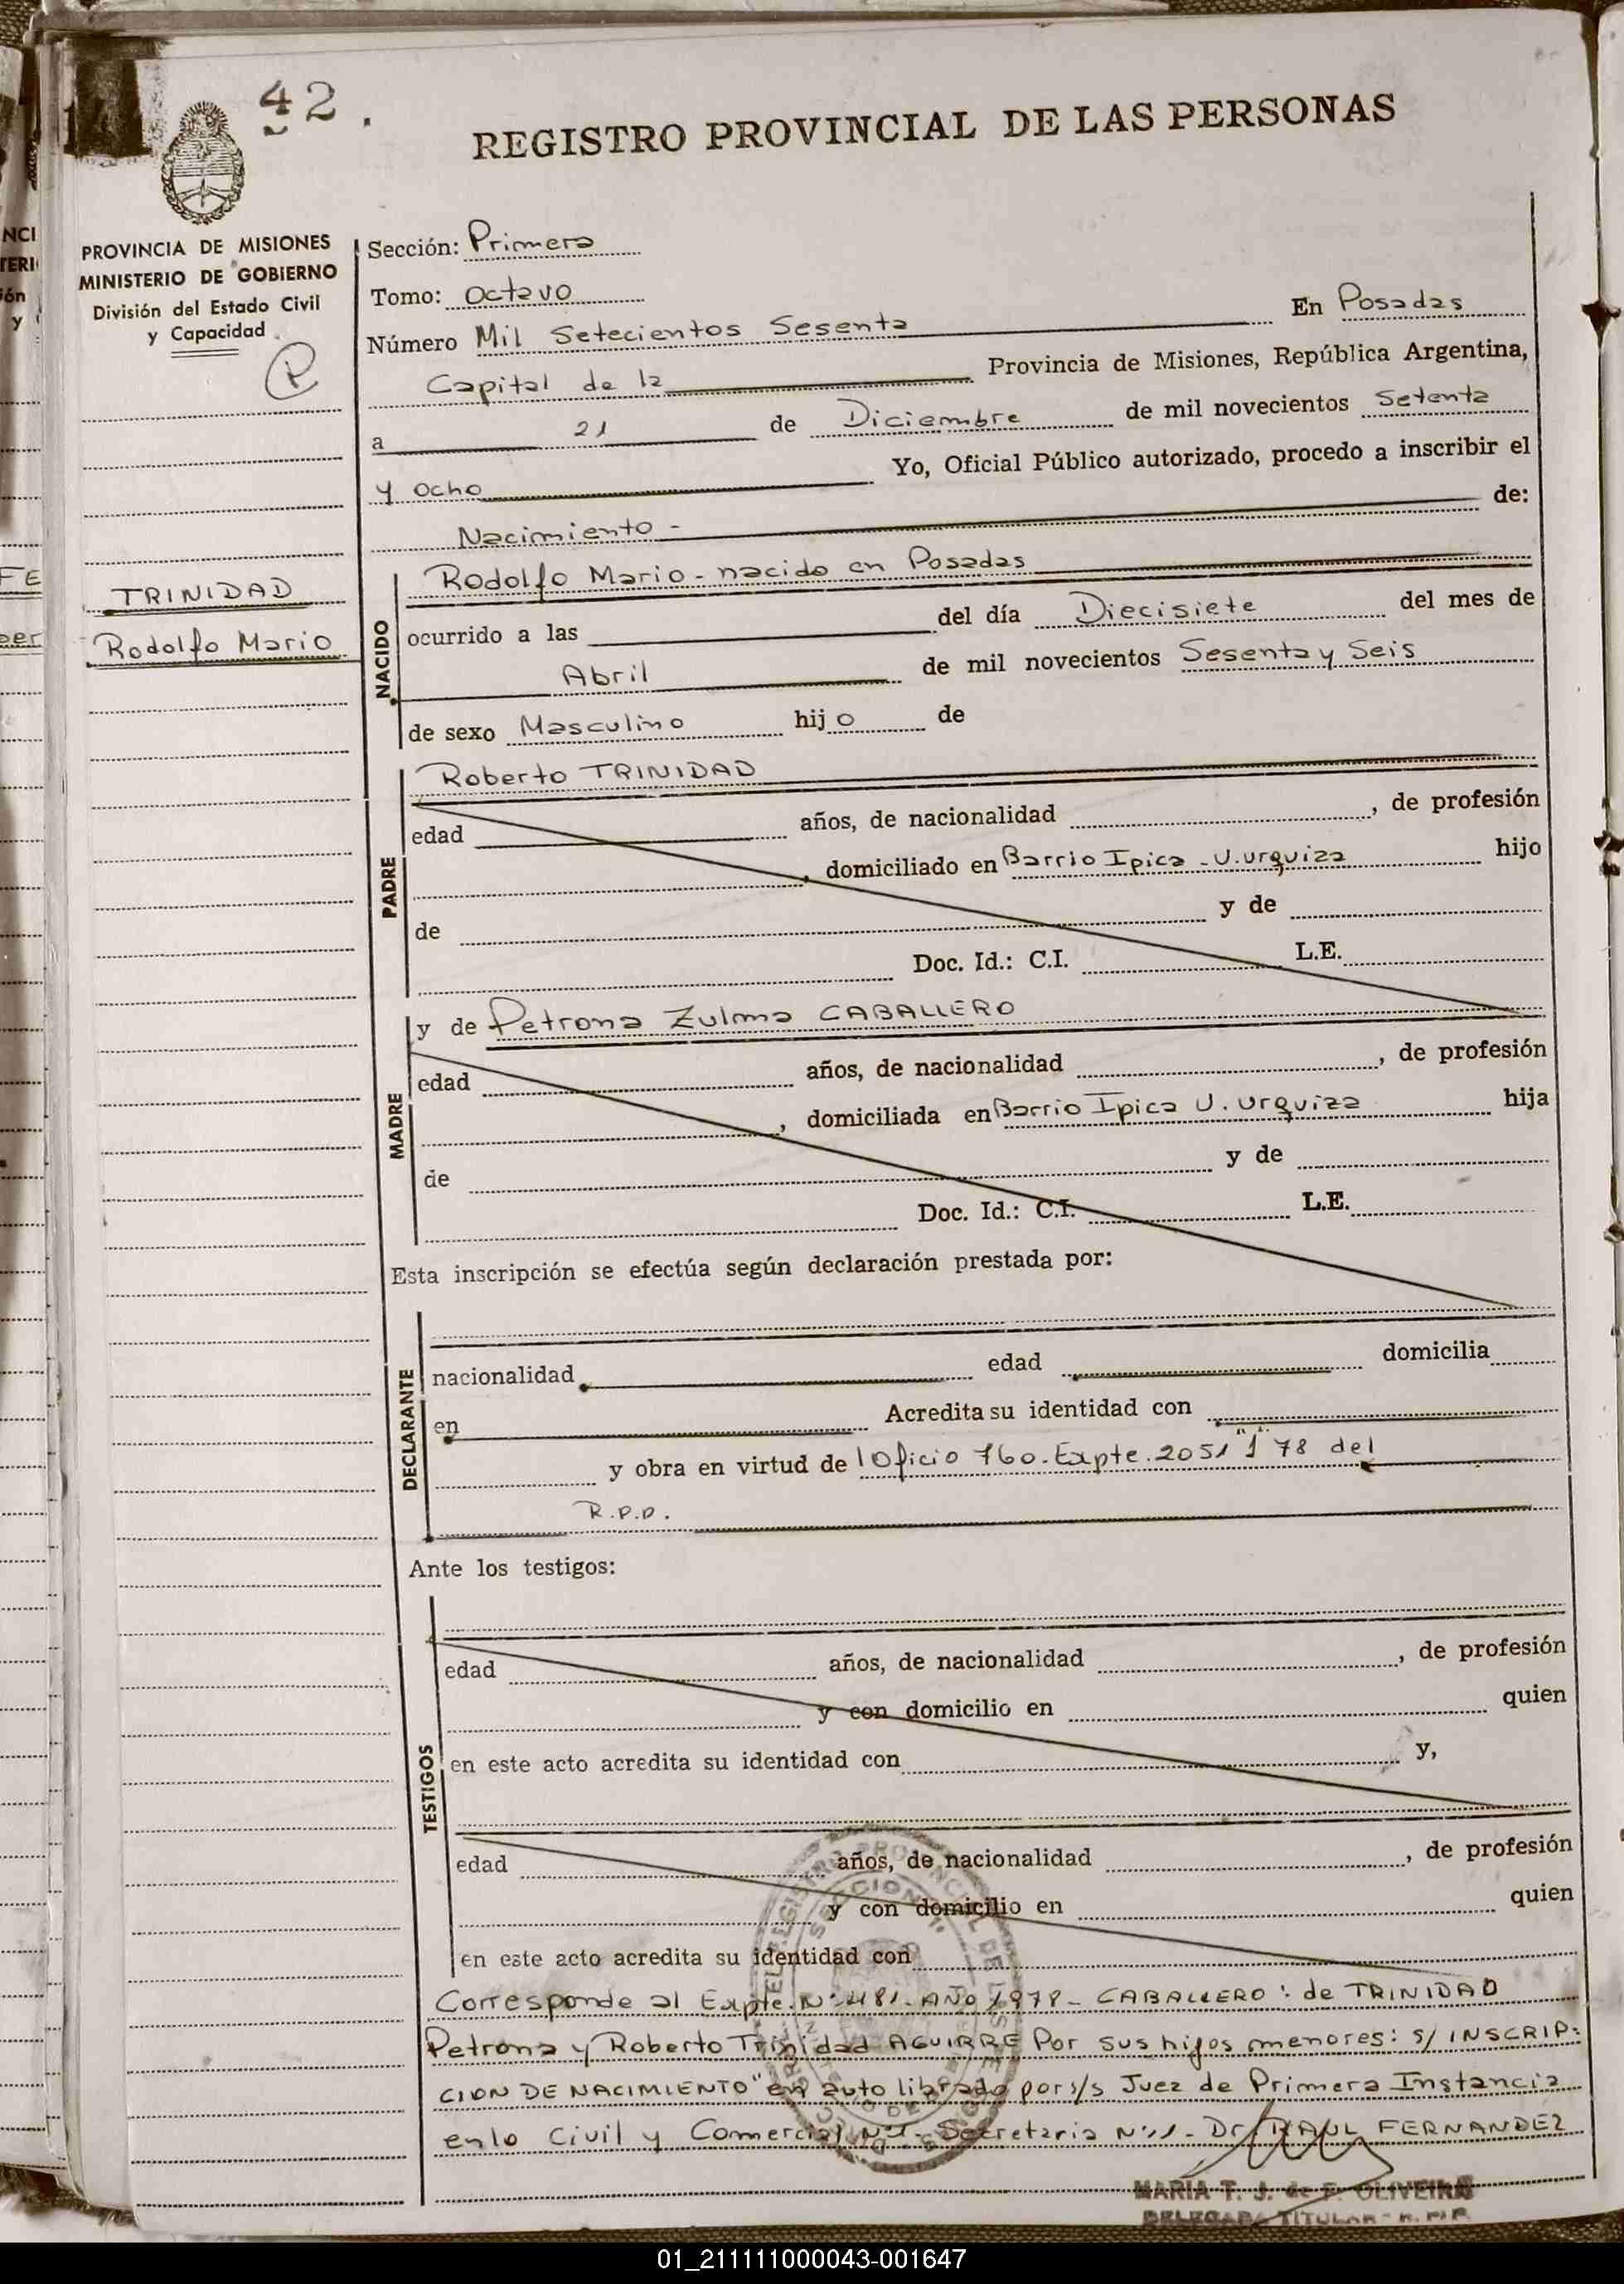 42.
REGISTRO PROVINCIAL DE LAS PERSONAS
PROVINCIA DE MISIONES
MINISTERIO DE GOBIERNO
División del Estado Civil
y Capacidad
P
TRINIDAD
Rodolfo Mario
Sección: Primera
Tomo: Octavo
Número Mil Setecientos Sesenta En Posadas
Capital de la Provincia de Misiones, República Argentina,
a 21 de Diciembre de mil novecientos Setenta
y Ocho Yo, Oficial Público autorizado, procedo a inscribir el
Nacimiento - de:
NACIDO
Rodolfo Mario - nacido en Posadas
ocurrido a las del día Diecisiete del mes de
Abril de mil novecientos Sesenta y Seis
de sexo Masculino hijo de
PADRE
Roberto TRINIDAD
edad años, de nacionalidad , de profesión
, domiciliado en Barrio Ipica - U. urquiza hijo
de y de
Doc. Id.: C.I. L.E.
MADRE
y de Petrona Zulma CABALLERO
edad años, de nacionalidad , de profesión
, domiciliada en Barrio Ipica U. urquiza hija
de y de
Doc. Id.: C.I. L.E.
Esta inscripción se efectúa según declaración prestada por:
DECLARANTE
nacionalidad edad domicilia
en Acredita su identidad con
y obra en virtud de l Oficio 760. Expte. 2051 78 del
R.P.P.
Ante los testigos:
TESTIGOS
edad años, de nacionalidad , de profesión
y con domicilio en quien
en este acto acredita su identidad con y,
edad años, de nacionalidad , de profesión
y con domicilio en quien
en este acto acredita su identidad con
Corresponde al Expte. Nº 481 - AÑO 1978 - CABALLERO: de TRINIDAD
Petrona y Roberto Trinidad AGUIRRE Por sus hijos menores: S/ INSCRIP:
CION DE NACIMIENTO" en auto librado por s/s Juez de Primera Instancia
en lo Civil y Comercial Nº 1 - Secretaria Nº 1 - Dr. RAUL FERNANDEZ
MARIA T. J. de F. OLIVEIRA
DELEGADA TITULAR - R. P. P.
01_211111000043-001647